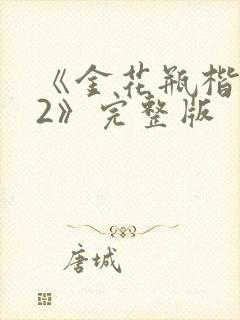 《金花瓶楷
2》完整版
唐城